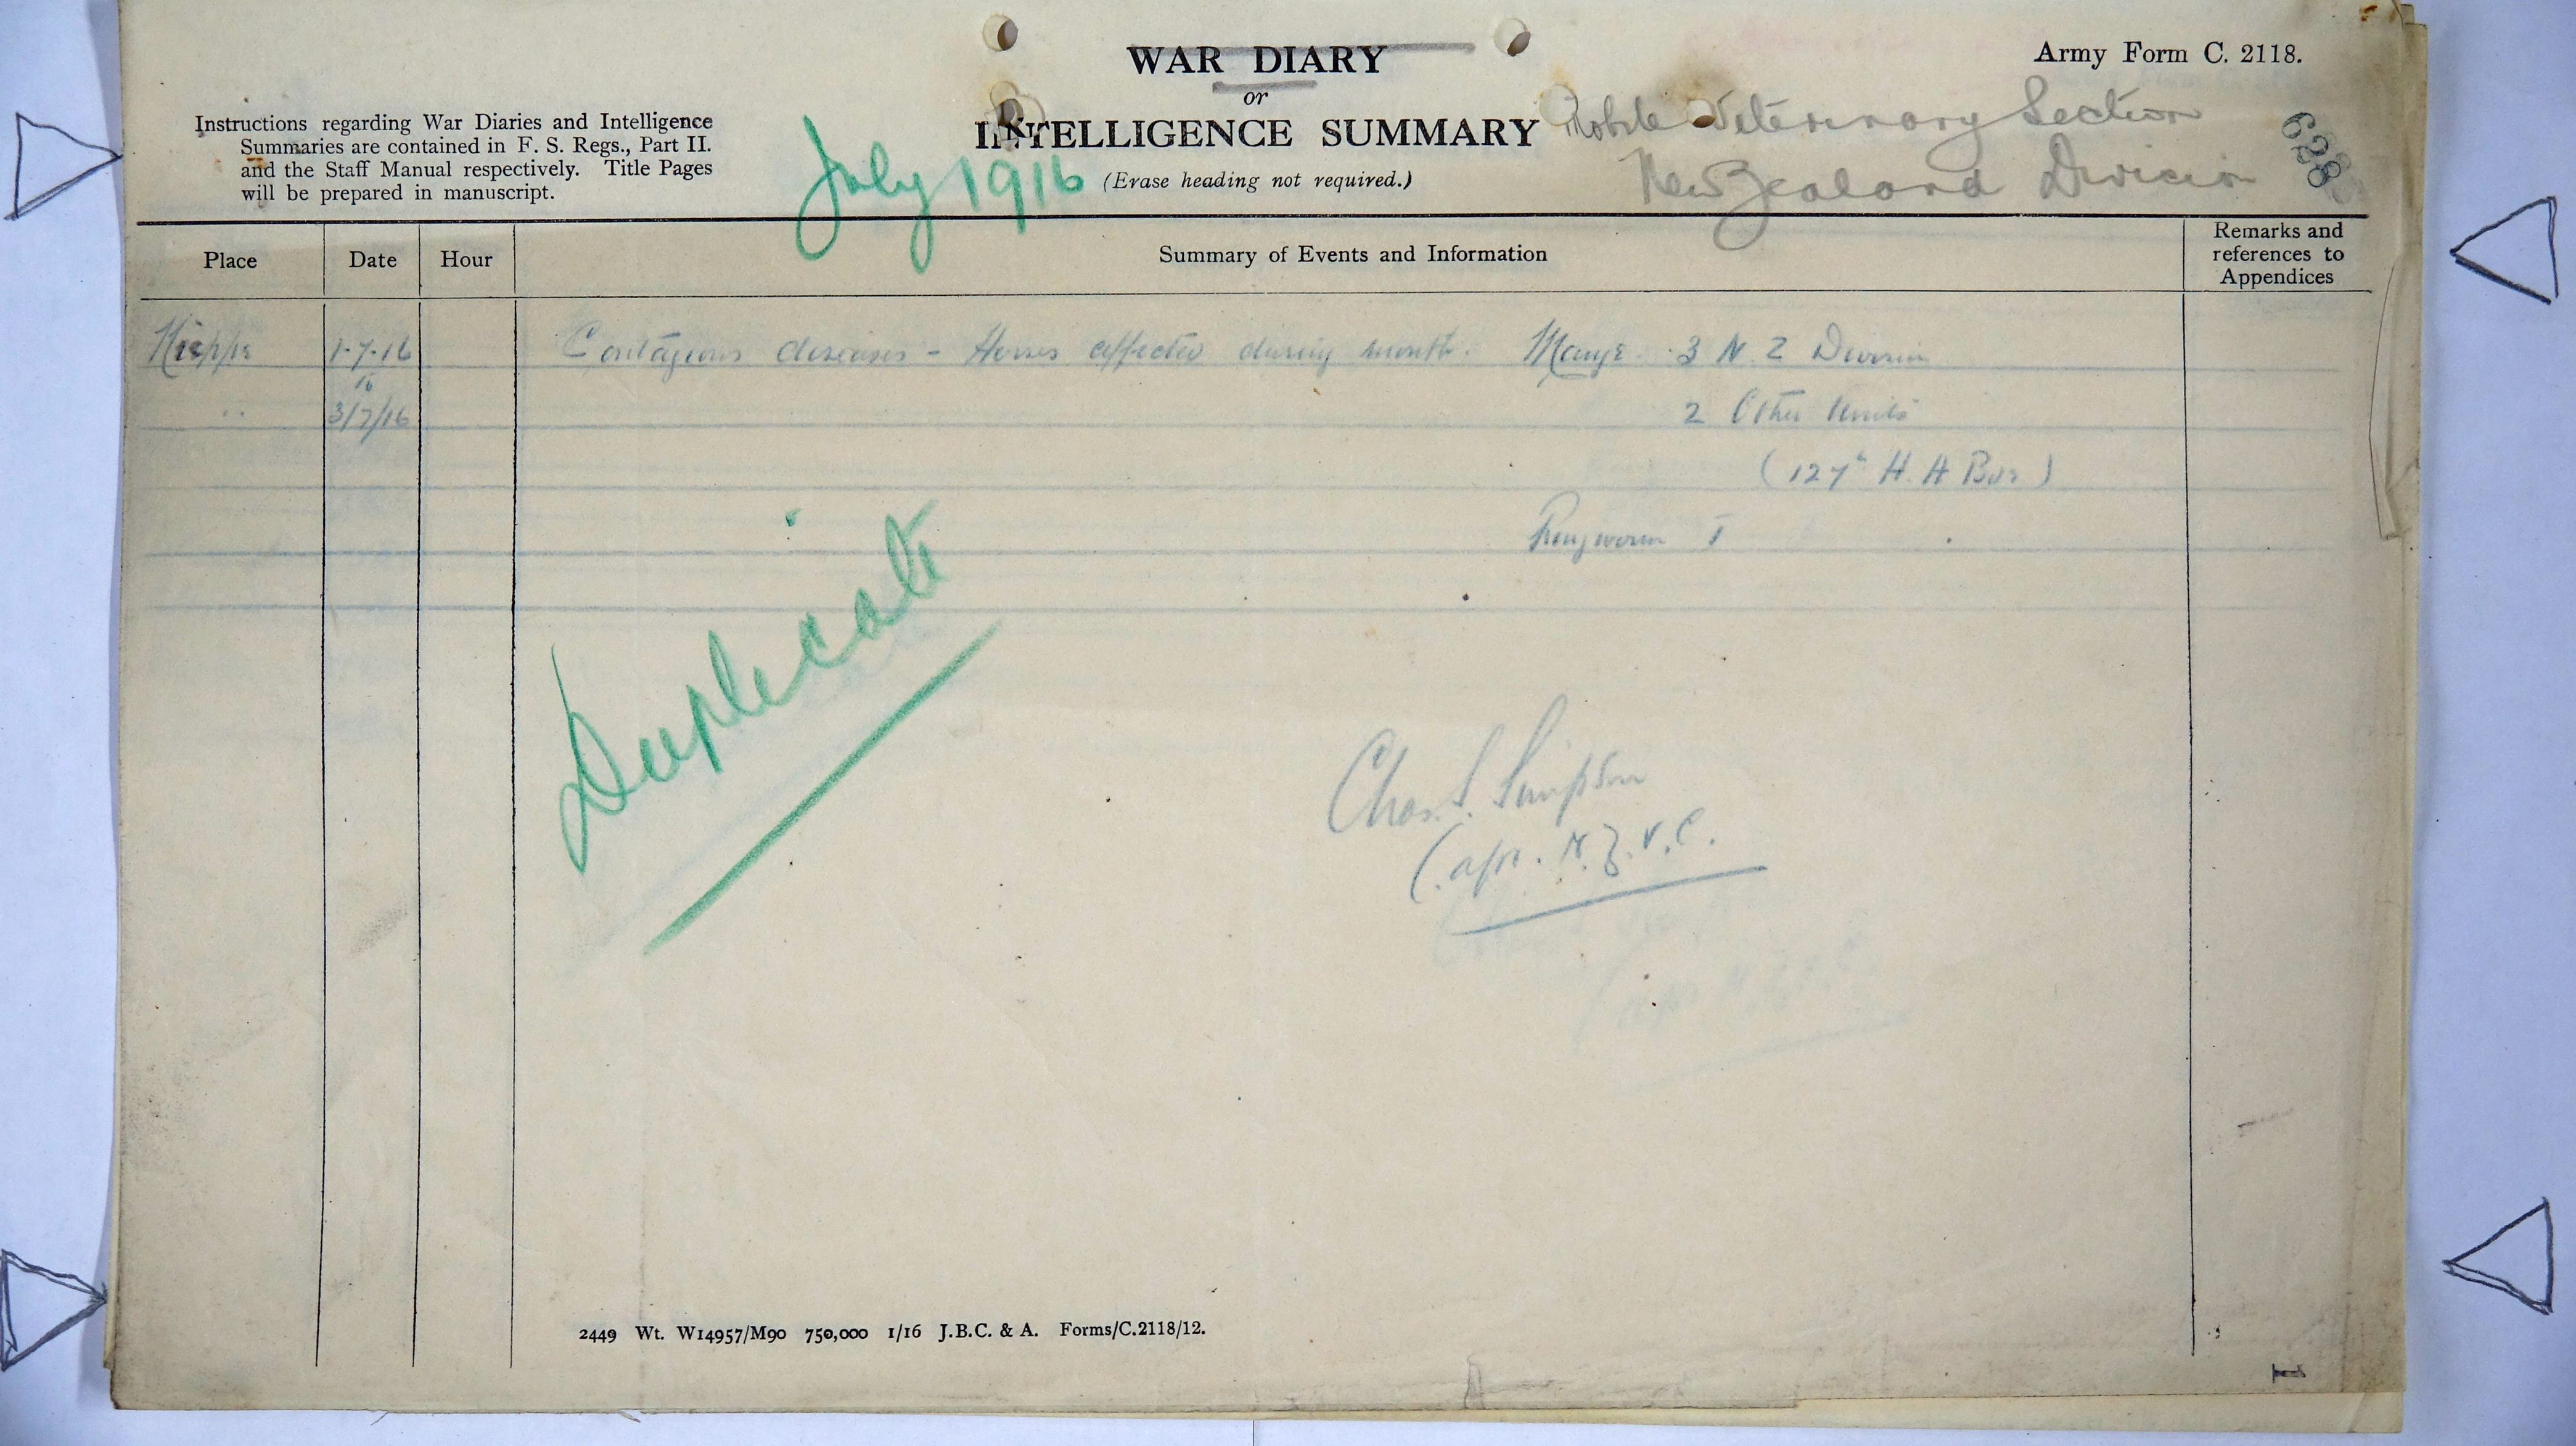 WAR DIARY
or
INTELLIGENCE SUMMARY
(Erase heading not required.)
Army Form C. 2118.
Instructions regarding War Diaries and Intelligence
Summaries are contained in F. S. Regs., Part II.
and the Staff Manual respectively. Title Pages
will be prepared in manuscript.
July 1916
Mobile Veterinary Section
New Zealand Division
628
Place Date Hour Summary of Events and Information Remarks and references to Appendices
Nieppe 1-7-16 Contagious diseases - Horses affected during month. Mange. 3 N Z Division
to
" 3/7/16 2 Other Units
(127th H. A Bde)
Ringworm 1
Duplicate
Chas. S. Simpson
Capt. N.Z.V.C.
2449 Wt. W14957/M90 750,000 1/16 J.B.C. & A. Forms/C.2118/12.
1